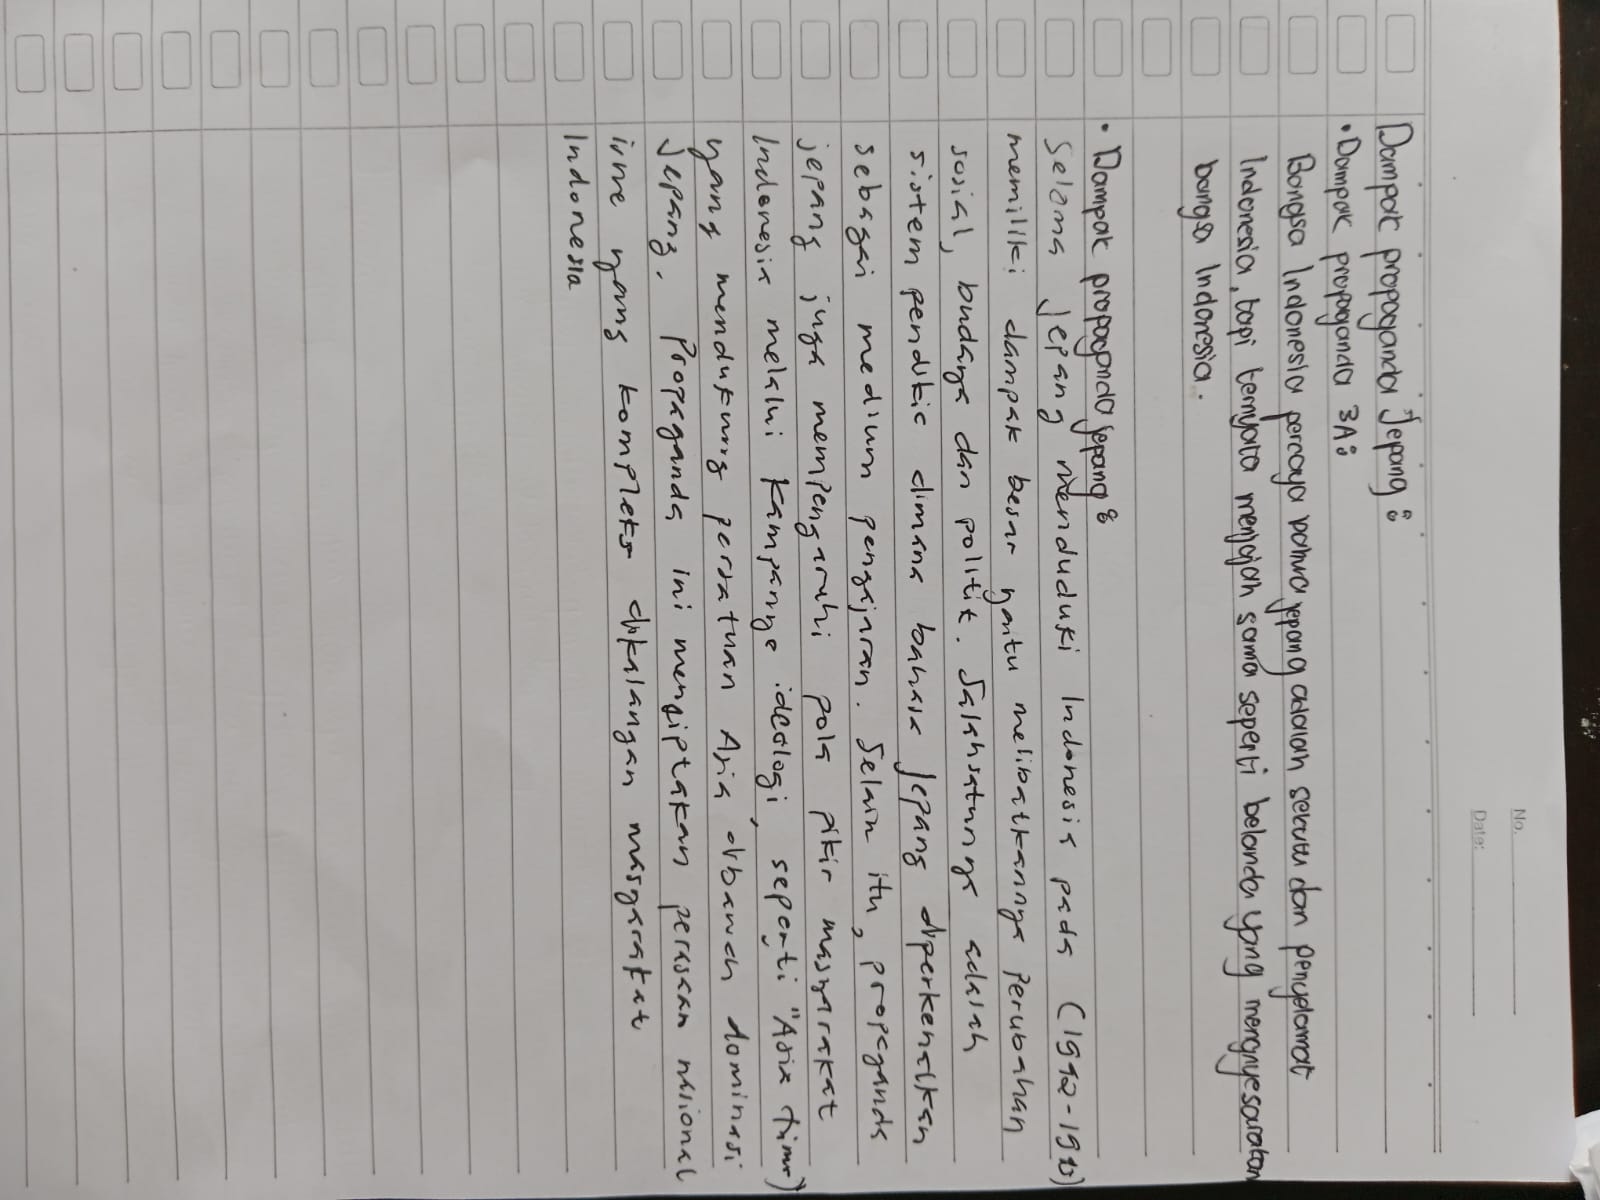 No.
Date:
Dampak propaganda Jepang :
• Dampak propaganda 3A :
Bangsa Indonesia percaya bahwa jepang adalah sekutu dan penyelamat
Indonesia, tapi ternyata menjajah sama seperti belanda yang mengnyesaratan
bangsa Indonesia.
• Dampak propaganda jepang :
Selama Jepang menduduki Indonesia pada
memiliki dampak besar yaitu melibatkannya perubahan
sosial, budaya dan politik. Salahsatunya adalah
sistem dimana bahasa Jepang diperkenalkan
sebagai medium pengajaran. Selain itu, propaganda
jepang juga mempengaruhi pola pikir masyarakat
Indonesia melalui kampanye ideologi, seperti "Asia
yang mendukung persatuan Asia dibawah dominasi
Jepang. Propaganda ini menciptakan perasaan nasional
yang kompleks dikalangan masyarakat
Indonesia